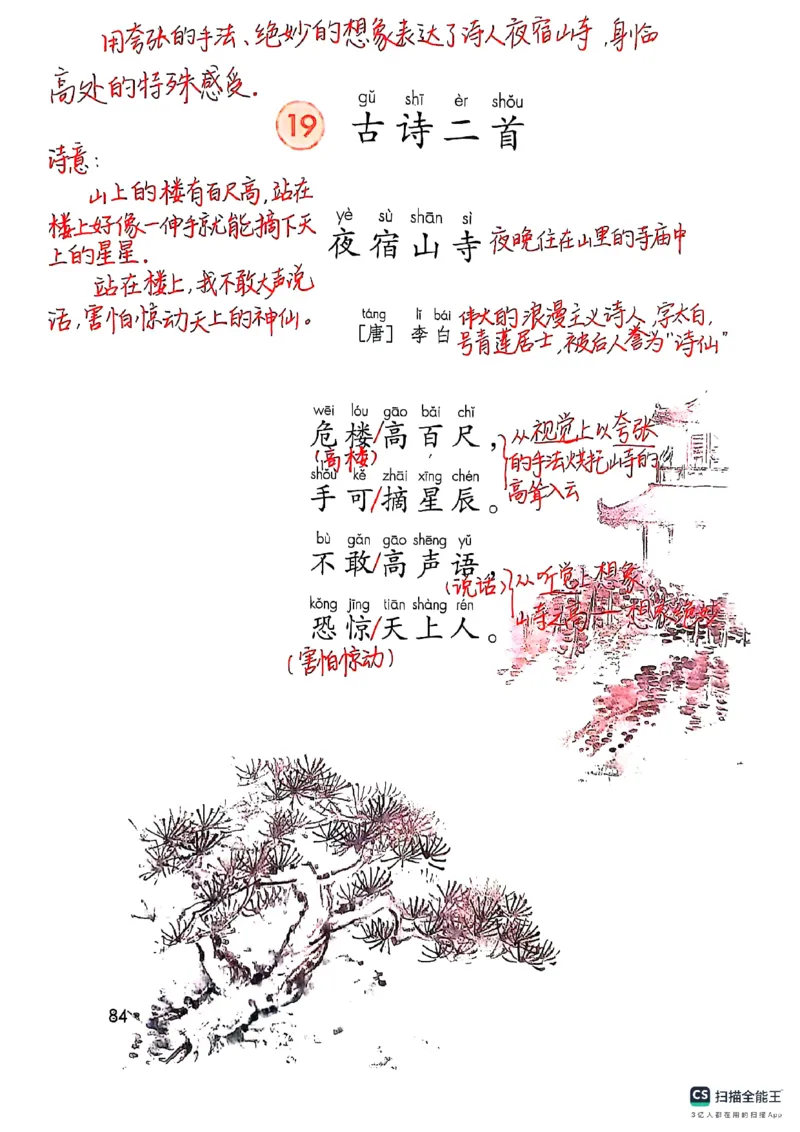 用夸张的手法、绝妙的想象表达了诗人夜宿山寺,身临
高处的特殊感受.
gǔ shī èr shǒu
19 古诗二首
诗意:
山上的楼有百尺高,站在
楼上好像一伸手就能摘下天
上的星星.
站在楼上,我不敢大声说
话,害怕惊动天上的神仙。
yè sù shān sì
夜宿山寺 夜晚住在山里的寺庙中
táng lǐ bái
[唐] 李白 伟大的浪漫主义诗人,字太白,
号青莲居士,被后人誉为"诗仙"
wēi lóu gāo bǎi chǐ
危楼/高百尺,
(高楼)
shǒu kě zhāi xīng chén
手可/摘星辰。
从视觉上以夸张
的手法烘托山寺的
高耸入云
bù gǎn gāo shēng yǔ
不敢/高声语,
(说话)
kǒng jīng tiān shàng rén
恐惊/天上人。
(害怕惊动)
从听觉上想象
山寺之高——想象绝妙
84
CS 扫描全能王
3亿人都在用的扫描App